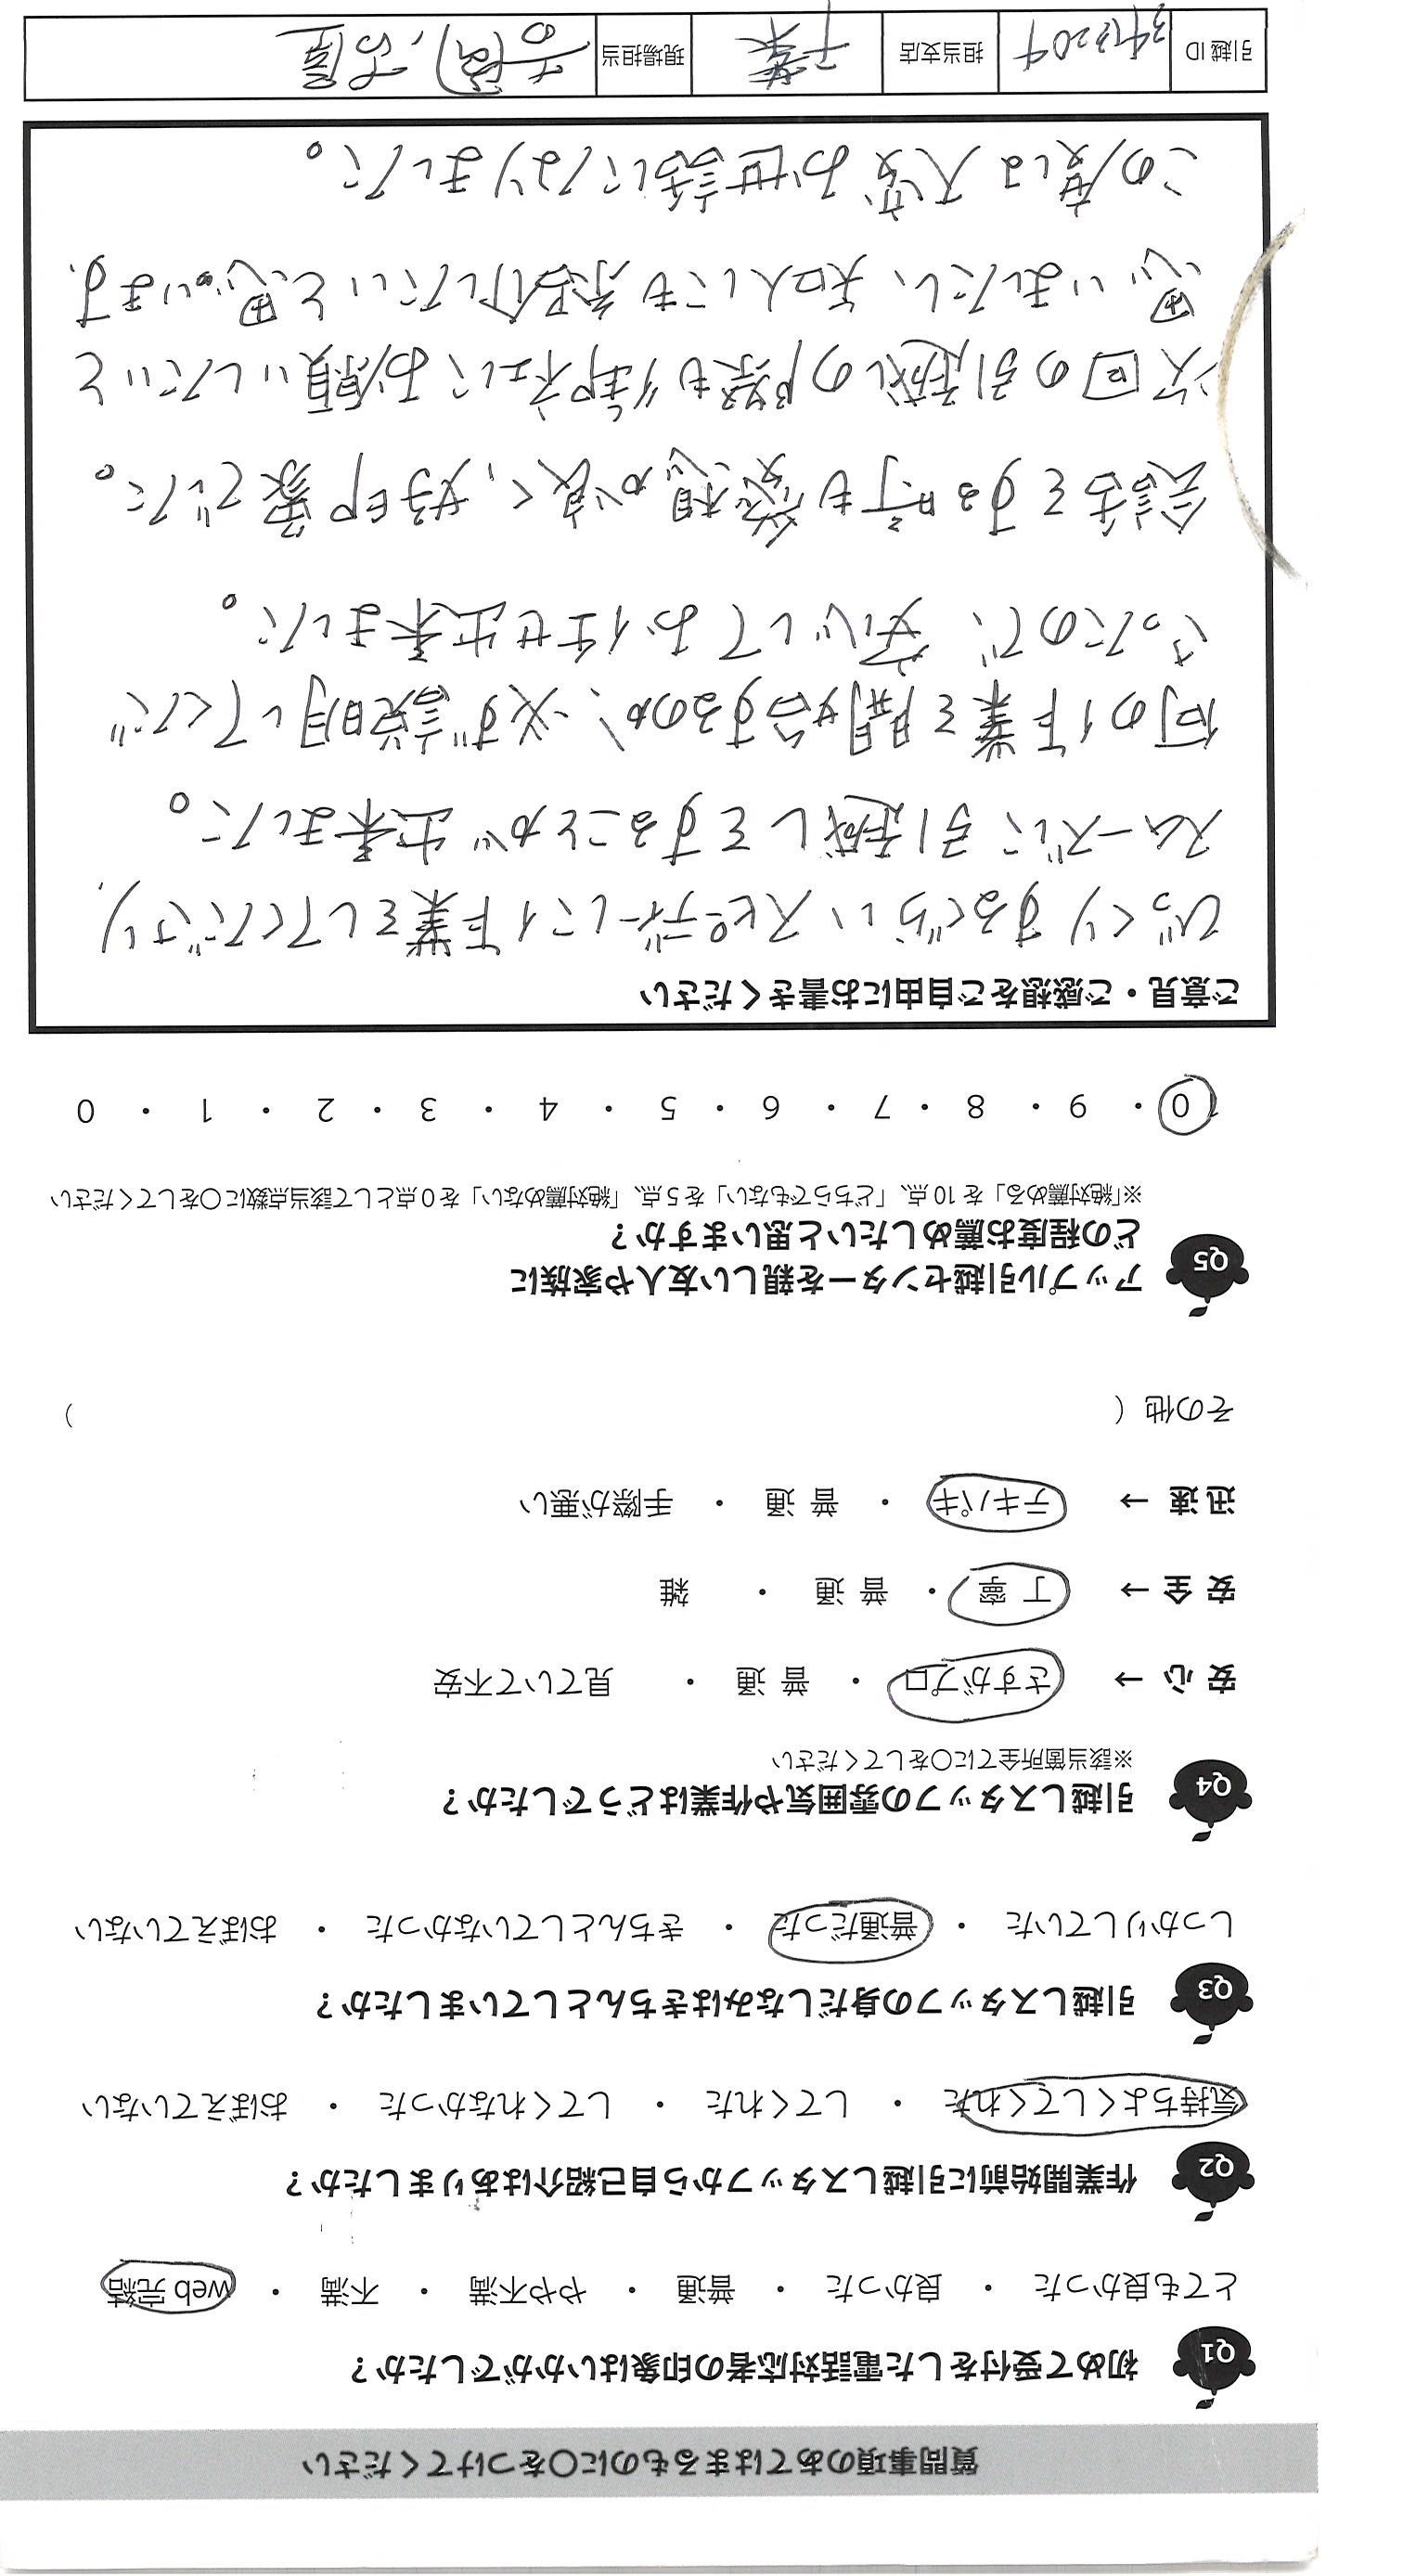 質問事項のあてはまるものに○をつけてください
Q1 初めて受付をした電話対応者の印象はいかがでしたか？
とても良かった ・ 良かった ・ 普通 ・ やや不満 ・ 不満 ・ web 完結
Q2 作業開始前に引越しスタッフから自己紹介はありましたか？
気持ちよくしてくれた ・ してくれた ・ してくれなかった ・ おぼえていない
Q3 引越しスタッフの身だしなみはきちんとしていましたか？
しっかりしていた ・ 普通だった ・ きちんとしていなかった ・ おぼえていない
Q4 引越しスタッフの雰囲気や作業はどうでしたか？
※該当箇所全てに○をしてください
安 心 → さすがプロ ・ 普 通 ・ 見ていて不安
安 全 → 丁 寧 ・ 普 通 ・ 雑
迅 速 → テキパキ ・ 普 通 ・ 手際が悪い
その他（ ）
Q5 アップル引越センターを親しい友人や家族に
どの程度お薦めしたいと思いますか？
※「絶対薦める」を 10 点、「どちらでもない」を 5 点、「絶対薦めない」を 0 点として該当点数に○をしてください
10 ・ 9 ・ 8 ・ 7 ・ 6 ・ 5 ・ 4 ・ 3 ・ 2 ・ 1 ・ 0
ご意見・ご感想をご自由にお書きください
びっくりするぐらいスピーディーに作業をしてくださり、
スムーズに引越しをすることが出来ました。
何の作業を開始するのか、必ず説明してくだ
さったので、安心してお任せ出来ました。
会話をする時も愛想が良く、好印象でした。
次回の引越しの際も御社にお願いしたいと
思いましたし、知人にも紹介したいと思います。
この度は大変お世話になりました。
引越 ID 担当支店 千葉 現場担当